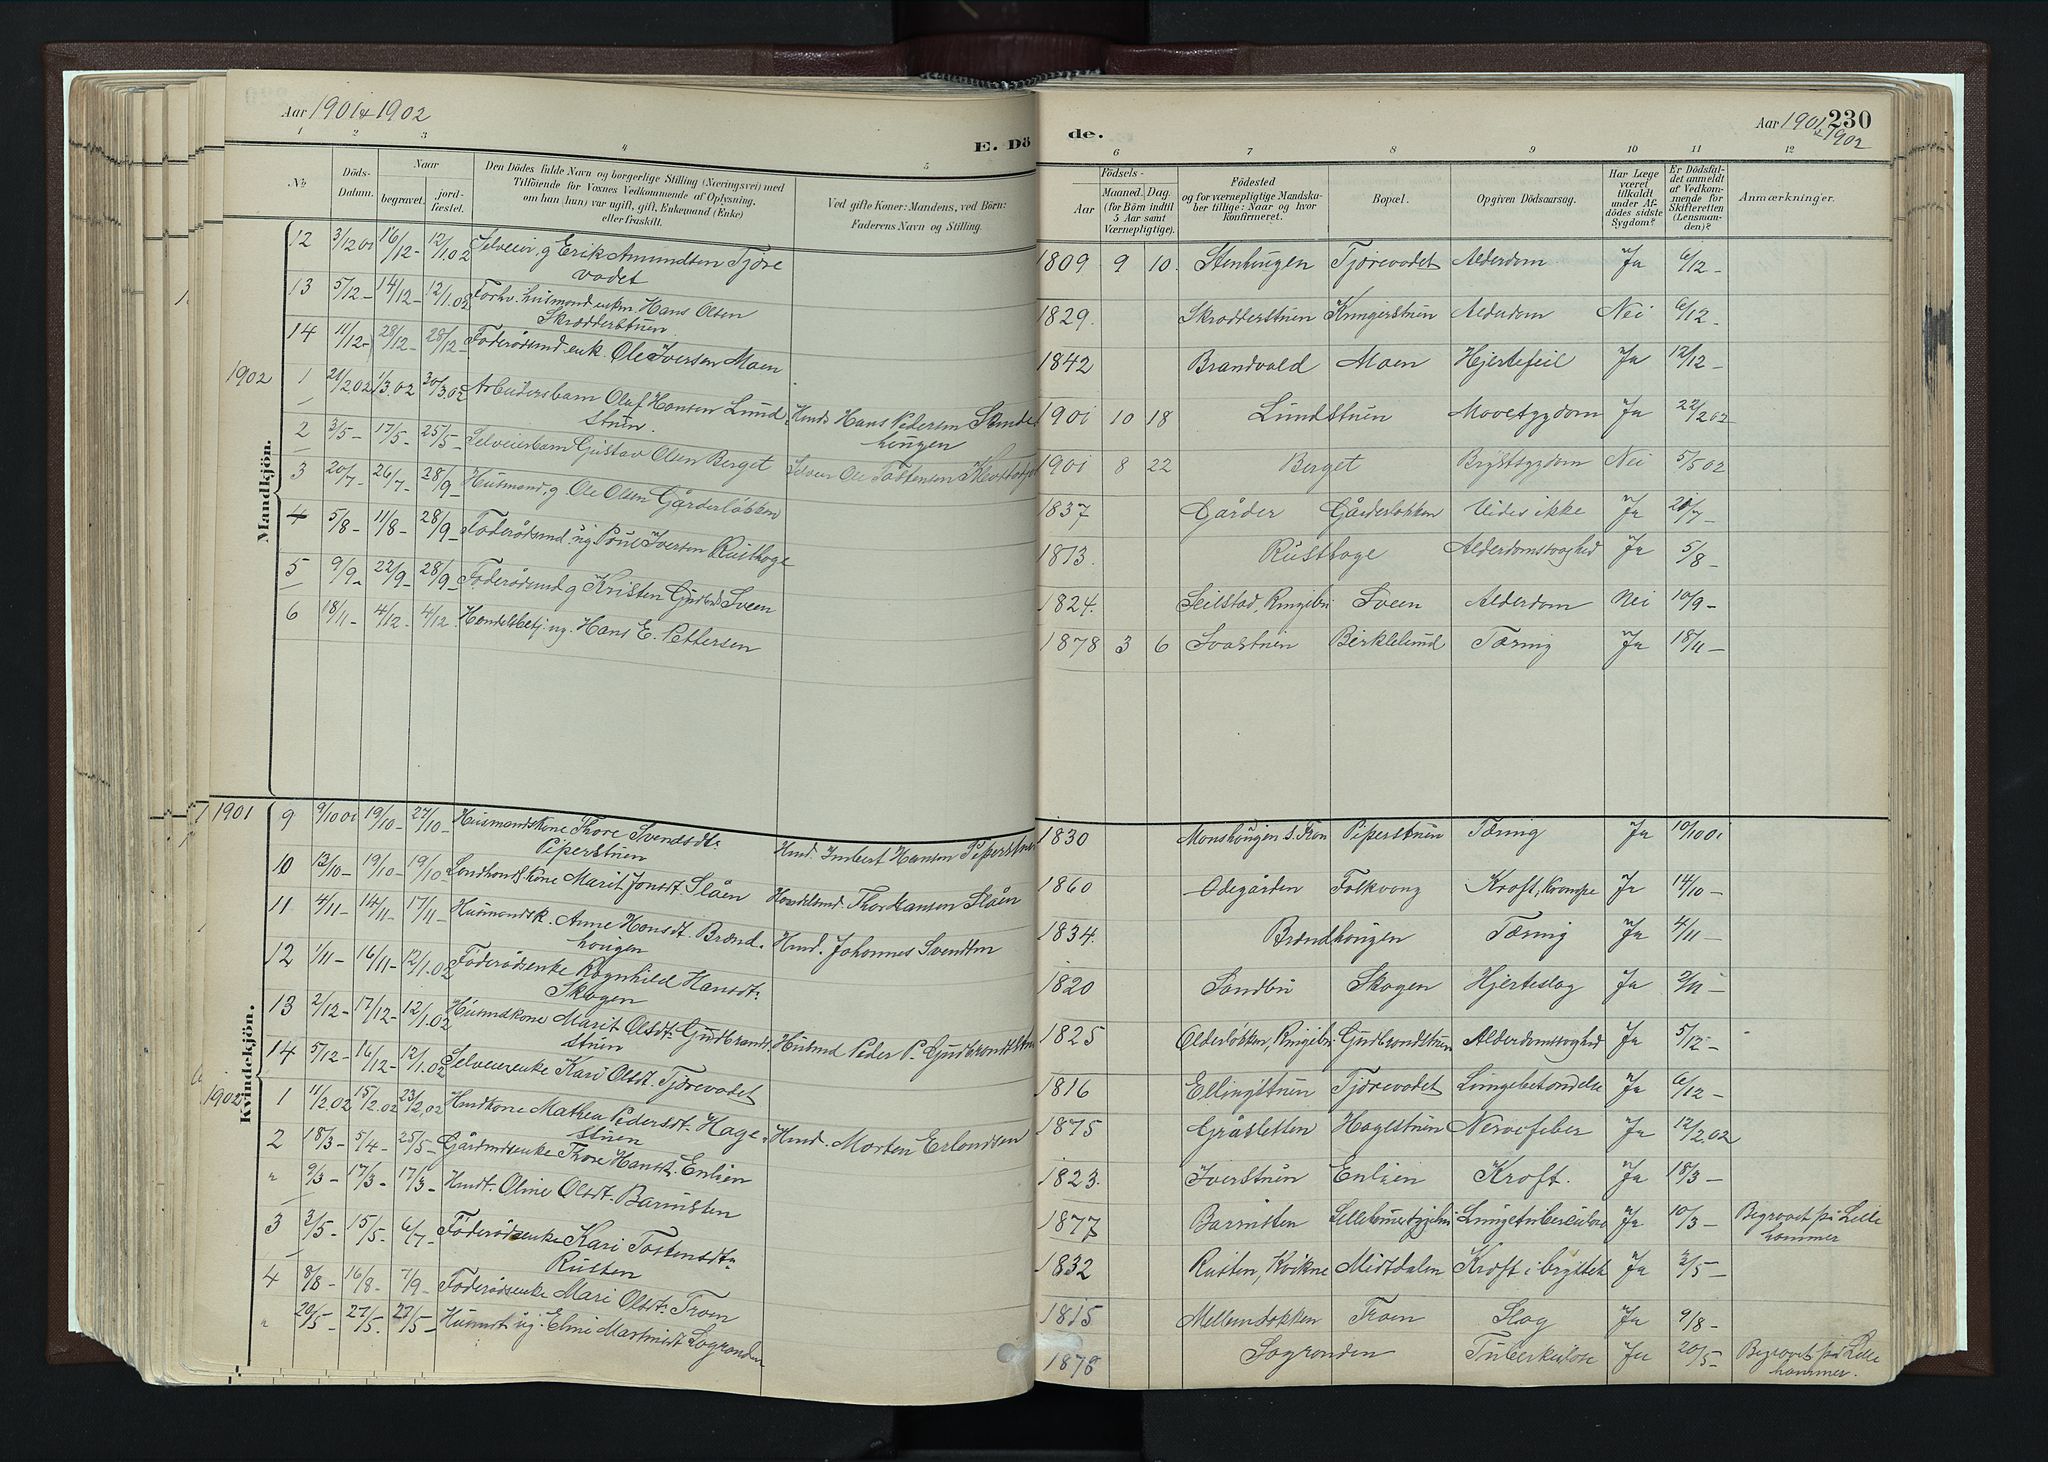 Aar 1901 & 1902
E. Dö
de.
Aar 1901 & 1902
230
1 2 3 4 5 6 7 8 9 10 11 12
No
Döds-Datum.
Naar
begravet.
jord-fæstet.
Den Dödes fulde Navn og borgerlige Stilling (Næringsvei) med
Tilföiende for Voxnes Vedkommende af Oplysning,
om han (hun) var ugift, gift, Enkemand (Enke)
eller fraskilt.
Ved gifte Koner: Mandens, ved Börn:
Faderens Navn og Stilling.
Födsels-
Aar
Maaned. Dag.
(for Börn indtil
5 Aar samt
Værnepligtige).
Födested
og for værnepligtige Mandska-
ber tillige: Naar og hvor
konfirmeret.
Bopæl.
Opgiven Dödsaarsag.
Har Læge
været
tilkaldt
under Af-
dödes sidste
Sygdom?
Er Dödsfal-
det anmeldt
af Vedkom-
mende for
Skifteretten
(Lensman-
den)?
Anmærkninger.
Mandkjön.
12 3/12 01 16/12- 12/1.02 Selveier, g Erik Amundsen Tjøre
vadet
1809 9 10. Stenhaugen Tjørevadet Alderdom Ja 6/12-
13 5/12- 14/12- 12/1.02 Forhv. husmand enkm Hans Olsen
Skrædderstuen
1829. Skrædderstuen Alderdom Nei 6/12-
14 11/12- 28/12- 28/12- Føderådsmd. enk. Ole Iversen Moen
1842 Brandvold Moen Hjertefeil Ja 12/12-
1902
1 21/2.02 1/3.02 30/3.02 Arbeidersbarn Olaf Hansen Lund
stuen.
Hmd. Hans Pedersen
haugen
1901 10 18 Lundstuen Mavesygdom Ja 22/2 02
2 3/5- 17/5- 25/5- Selveierbarn Gustav Olsen Berget
Selveier Ole Tostensen
1901 8 22 Berget Brystsygdom Nei 5/5 02
3 20/7- 26/7- 28/9- Husmand, g Ole Olsen Gårderløkken
1837 Gårder Gårderløkken Vides ikke Ja 21/7-
4 5/8- 11/8- 28/9- Føderådsmd. ug. Poul Iversen Rusthage
1813. Rusthage Alderdomssvaghed Ja 5/8-
5 9/9- 22/9- 28/9- Føderådsmd g Kristen Gudbr. Sveen
1824. Seilstad, Ringebu Sveen Alderdom Nei 10/9-
6 18/11- 4/12- 4/12- Handelsbetj. ug. Hans E. Pettersen
1878 3 6 Svastuen Birkelund Tæring Ja 18/11-
Kvindekjön.
1901
9 9/10 01 19/10- 27/10- Husmandskone Thore Svendsdt:
Piperstuen
Hmd. Imbert Hansen Piperstuen
1830 Monshaugen s. Fron Piperstuen Tæring Ja 10/10 01
10 13/10- 19/10- 19/10- Landhandl. kone Marit Jonsdt. Slåen
Handelsmd. Thor Hansen Slåen
1860 Ødegården Folkvang Kræft, Krampe Ja 14/10-
11 4/11- 14/11- 17/11- Husmandsk. Anne Hansdt. Brænd-
haugen
Hmd. Johannes Svendsen
1834. Brændhaugen Tæring Ja 4/11-
12 1/11- 16/11- 12/1.02 Føderådsenke Ragnhild Hansdt:
Skogen
1820 Sandbu Skogen Hjerteslag Ja 2/11-
13 2/12- 17/12- 12/1.02 Husmdkone Marit Olsdt: Gudbrands-
stuen
Husmd Peder P. Gudbrandstuen
1825 Olderløkken, Ringebu Gudbrandstuen Alderdomssvaghed Ja 5/12-
14 5/12- 16/12- 12/1.02 Selveierenke Kari Olsdt. Tjørevadet
1816 Ellingstuen Tjørevadet Lungebetændelse Ja 6/12-
1902
1 11/2.02 15/2.02 23/2.02 Hmdkone Mathea Pedersdt. Hage-
stuen
Hmd. Morten Erlandsen
1875 Gråsletten Hagestuen Nervefeber Ja 12/2.02
2 18/3- 5/4- 25/5- Gårdmdsenke Thore Hansdt. Enlien
1823. Iverstuen Enlien Kræft. Ja 18/3-
" 9/3- 17/3- 17/3- Hmdt. Oline Olsdt. Barnsten
1877 Lungetuberkulose Ja 10/3- Begravet på Lille
hammer
3 2/5- 15/5- 6/7- Føderådsenke Kari Tostensdt:
Rusten
1832 Rusten, Kvikne Midtdalen Kræft i brystet Ja 3/5-
4 8/8- 16/8- 7/9- Føderådsenke Mari Olsdt: Troen
1815 Mellemløkken Troen Slag Ja 9/8-
" 20/5- 27/5- 27/5- Husmdt. ug. Eline Martinsdt Sogranden
1878 Sogranden Tuberkulose Ja 20/5- Begravet på Lille
hammer.